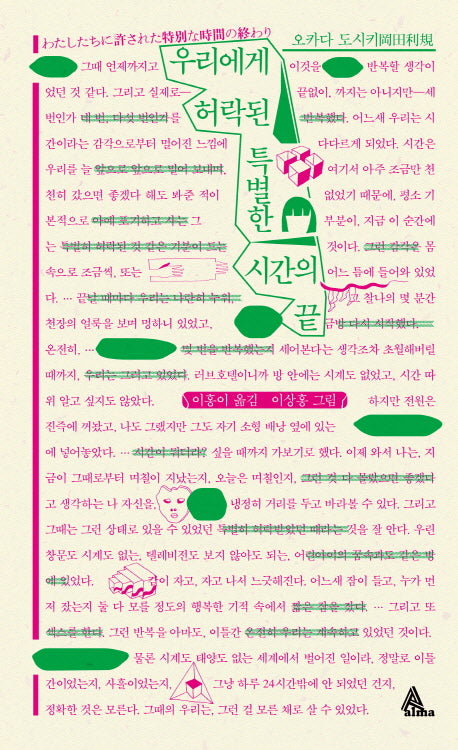 わたしたちに許された特別な時間の終わり
오카다 도시키岡田利規
우리에게
허락된
특별한
시간의
끝
그때 언제까지고 이것을 반복할 생각이
었던 것 같다. 그리고 실제로— 끝없이, 까지는 아니지만—세
번인가 네 번, 다섯 번인가를 반복했다. 어느새 우리는 시
간이라는 감각으로부터 멀어진 느낌에 다다르게 되었다. 시간은
우리를 늘 앞으로 앞으로 밀어 보내며, 여기서 아주 조금만 천
천히 갔으면 좋겠다 해도 봐준 적이 없었기 때문에, 평소 기
본적으로 아예 포기하고 사는 그 부분이, 지금 이 순간에
는 특별히 허락된 것 같은 기분이 드는 것이다. 그런 감각은 몸
속으로 조금씩, 또는 어느 틈에 들어와 있었
다. … 끝날 때마다 우리는 나란히 누워, 그 찰나의 몇 분간
천장의 얼룩을 보며 멍하니 있었고, 금방 다시 시작했다.
온전히, … 몇 번을 반복했는지 세어본다는 생각조차 초월해버릴
때까지, 우리는 그러고 있었다. 러브호텔이니까 방 안에는 시계도 없었고, 시간 따
위 알고 싶지도 않았다. 이홍이 옮김 이상홍 그림 하지만 전원은
진즉에 꺼놨고, 나도 그랬지만 그도 자기 소형 배낭 옆에 있는
에 넣어놓았다. … 시간이 뭐더라? 싶을 때까지 가보기로 했다. 이제 와서 나는, 지
금이 그때로부터 며칠이 지났는지, 오늘은 며칠인지, 그런 것 다 몰랐으면 좋겠다
고 생각하는 나 자신을, 냉정히 거리를 두고 바라볼 수 있다. 그리고
그때는 그런 상태로 있을 수 있었던 특별히 허락받았던 때라는 것을 잘 안다. 우린
창문도 시계도 없는, 텔레비전도 보지 않아도 되는, 어린아이의 꿈속과도 같은 방
에 있었다. 같이 자고, 자고 나서 느긋해진다. 어느새 잠이 들고, 누가 먼
저 잤는지 둘 다 모를 정도의 행복한 기적 속에서 짧은 잠을 잤다. … 그리고 또
섹스를 한다. 그런 반복을 아마도, 이틀간 온전히 우리는 계속하고 있었던 것이다.
물론 시계도 태양도 없는 세계에서 벌어진 일이라. 정말로 이틀
간이었는지, 사흘이었는지, 그냥 하루 24시간밖에 안 되었던 건지,
정확한 것은 모른다. 그때의 우리는, 그런 걸 모른 체로 살 수 있었다.
alma